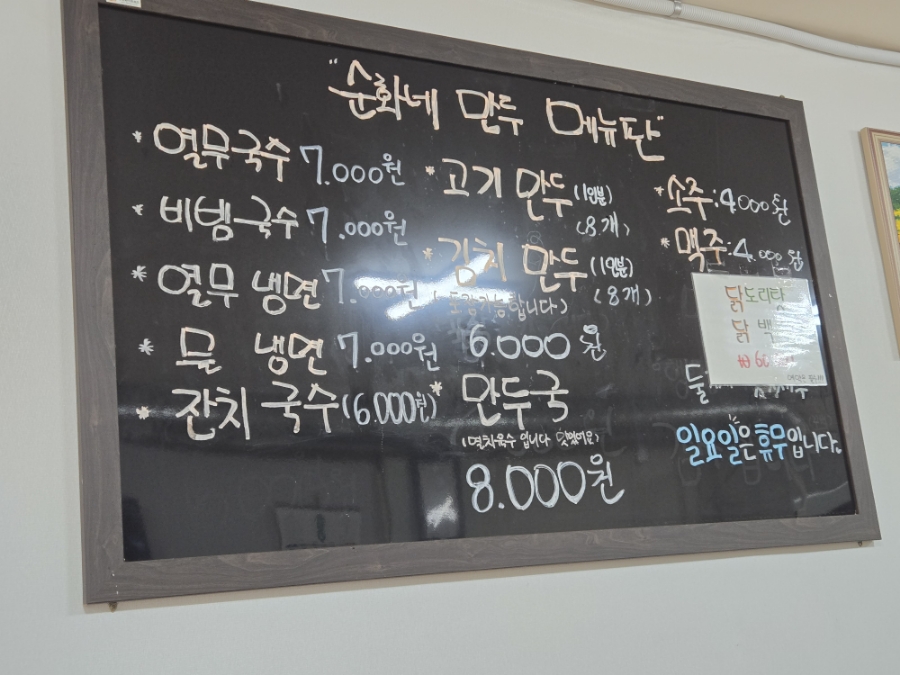 "순화네 만두 메뉴판"
* 열무국수 7.000원
* 비빔국수 7.000원
* 열무 냉면 7.000원
* 물 냉면 7.000원
* 잔치 국수 (6.000원)
* 고기 만두 (1인분)
(8개)
* 김치 만두 (1인분)
(8개)
6.000원
* 만두국
(멸치육수 입니다 맛있어요)
8.000원
* 소주:4000원
* 맥주:4.000원
닭도리탕
닭 백
₩ 60
일요일은 휴무입니다.